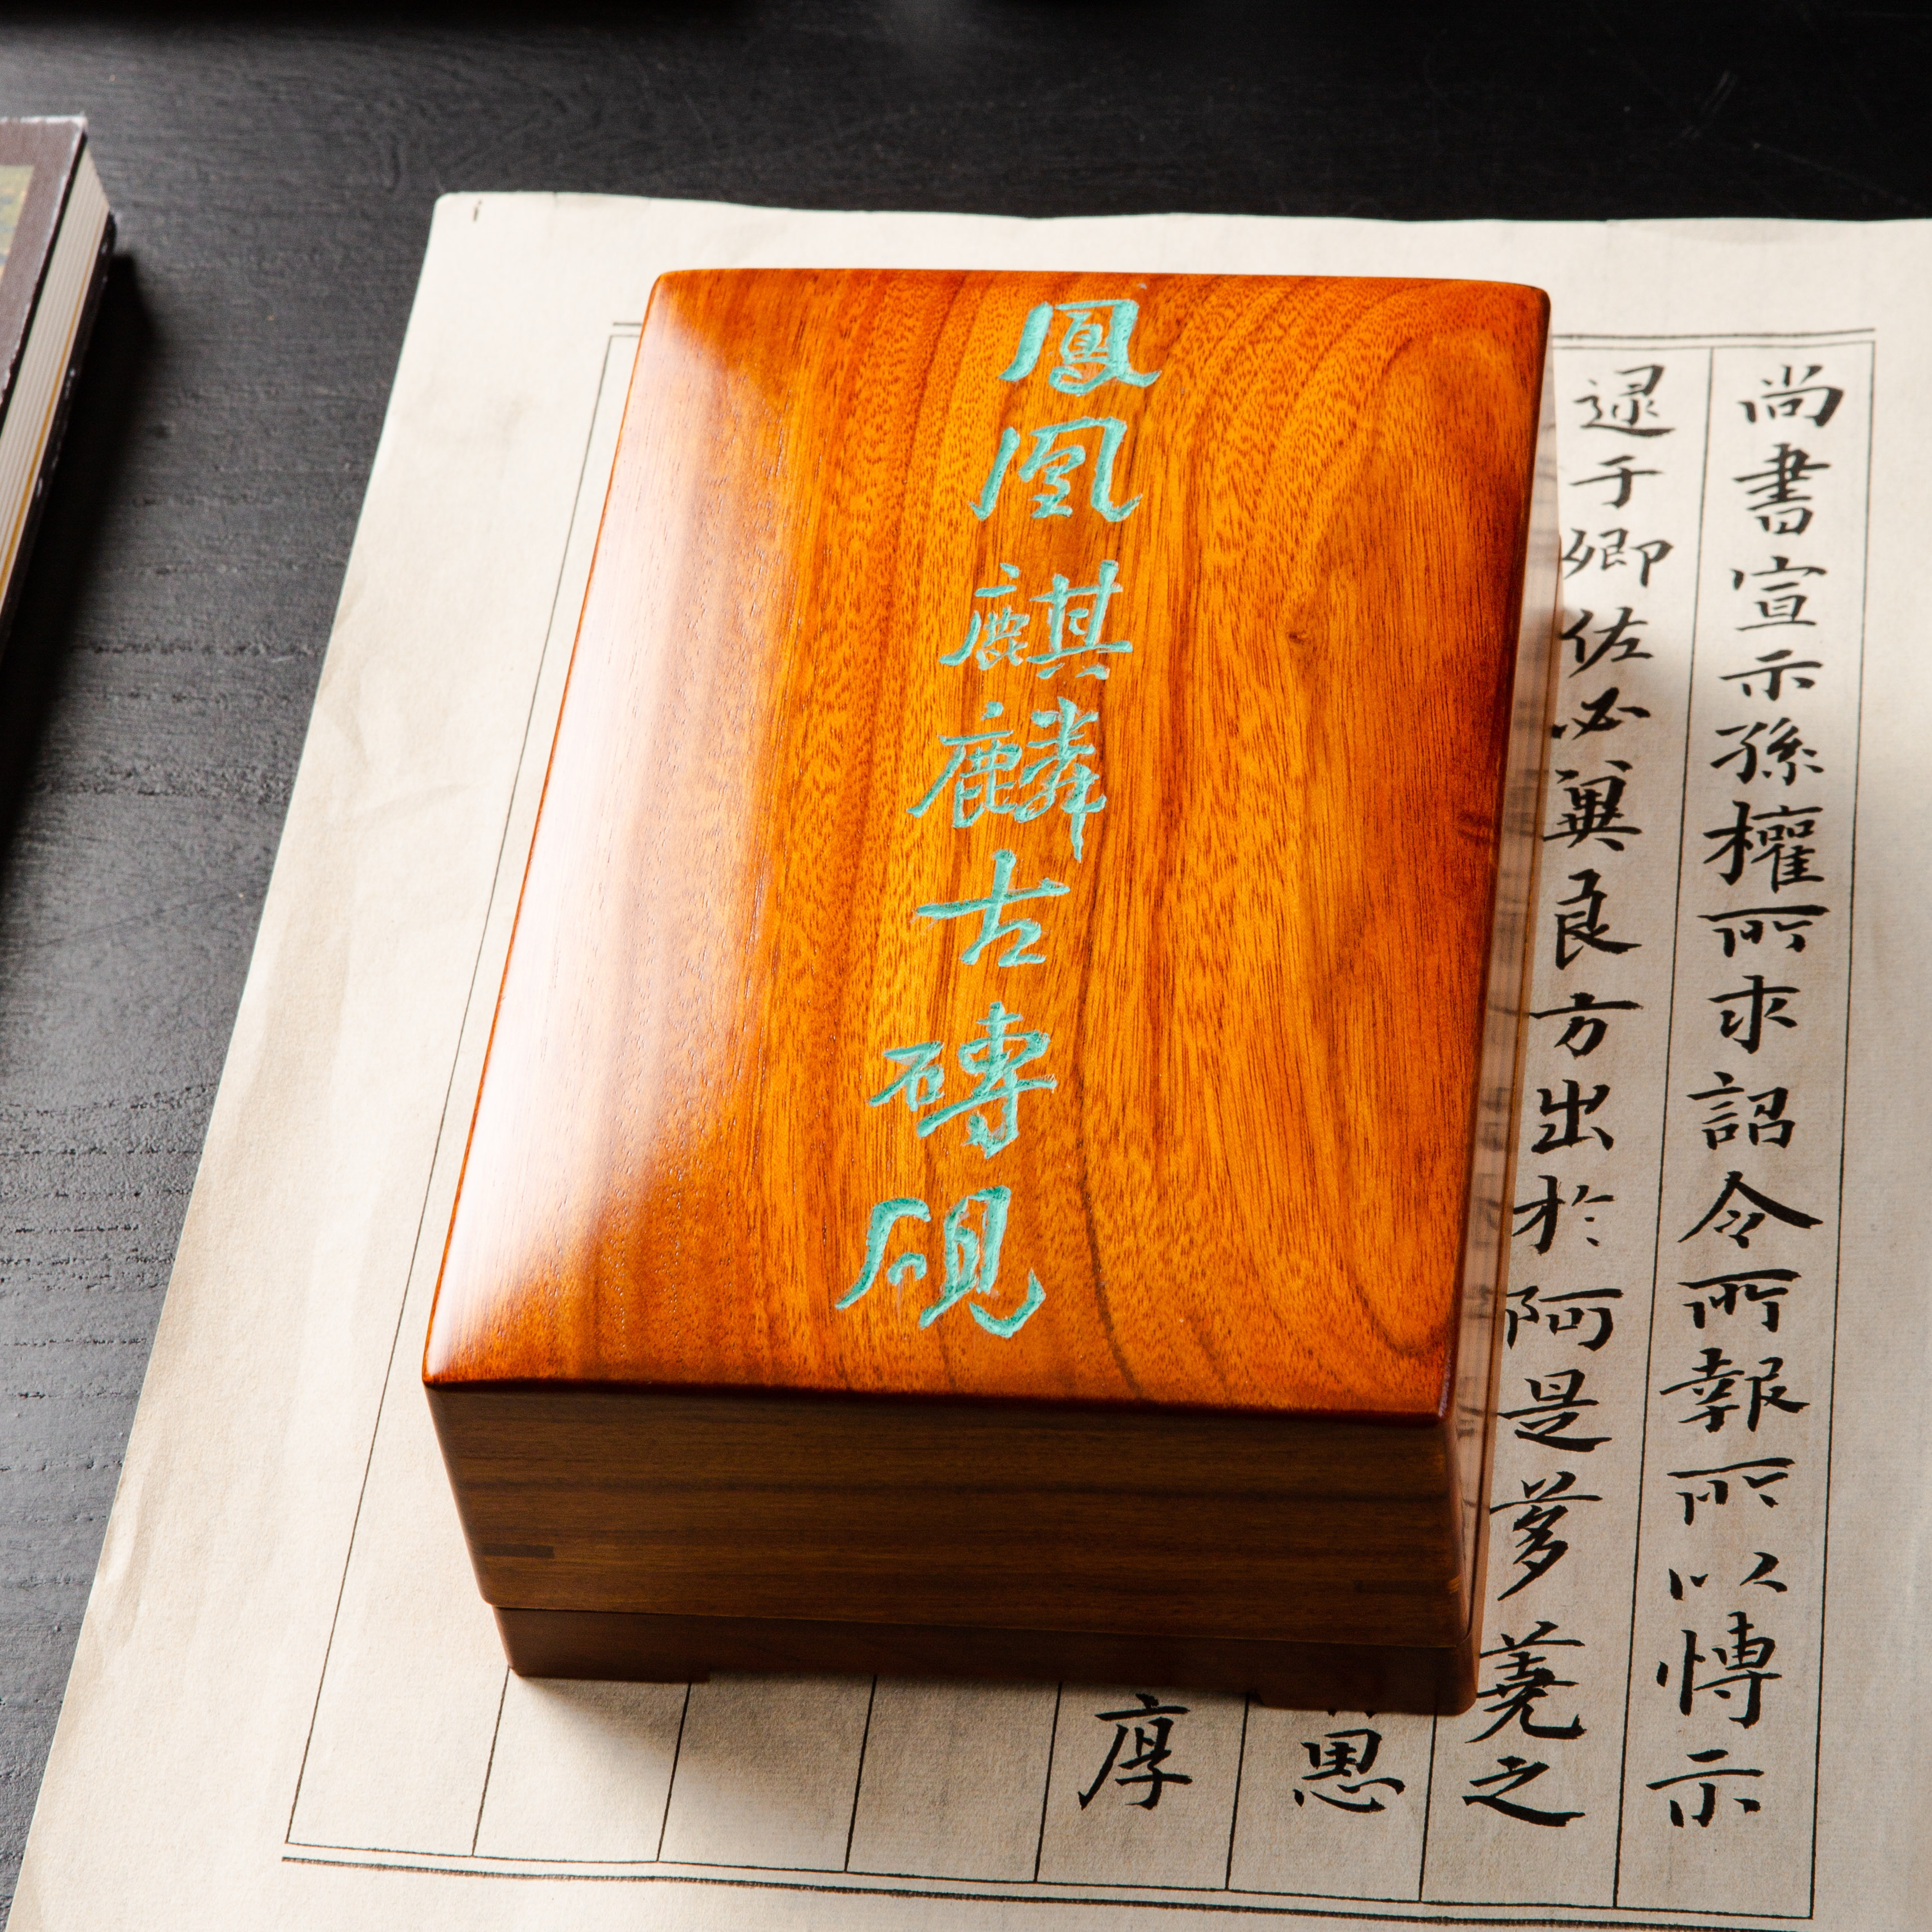 鳳凰麒麟古磚硯
尚書宣示孫權所求詔令所報所以博示
逮于卿佐必冀良方出於阿是芻蕘之
思
厚